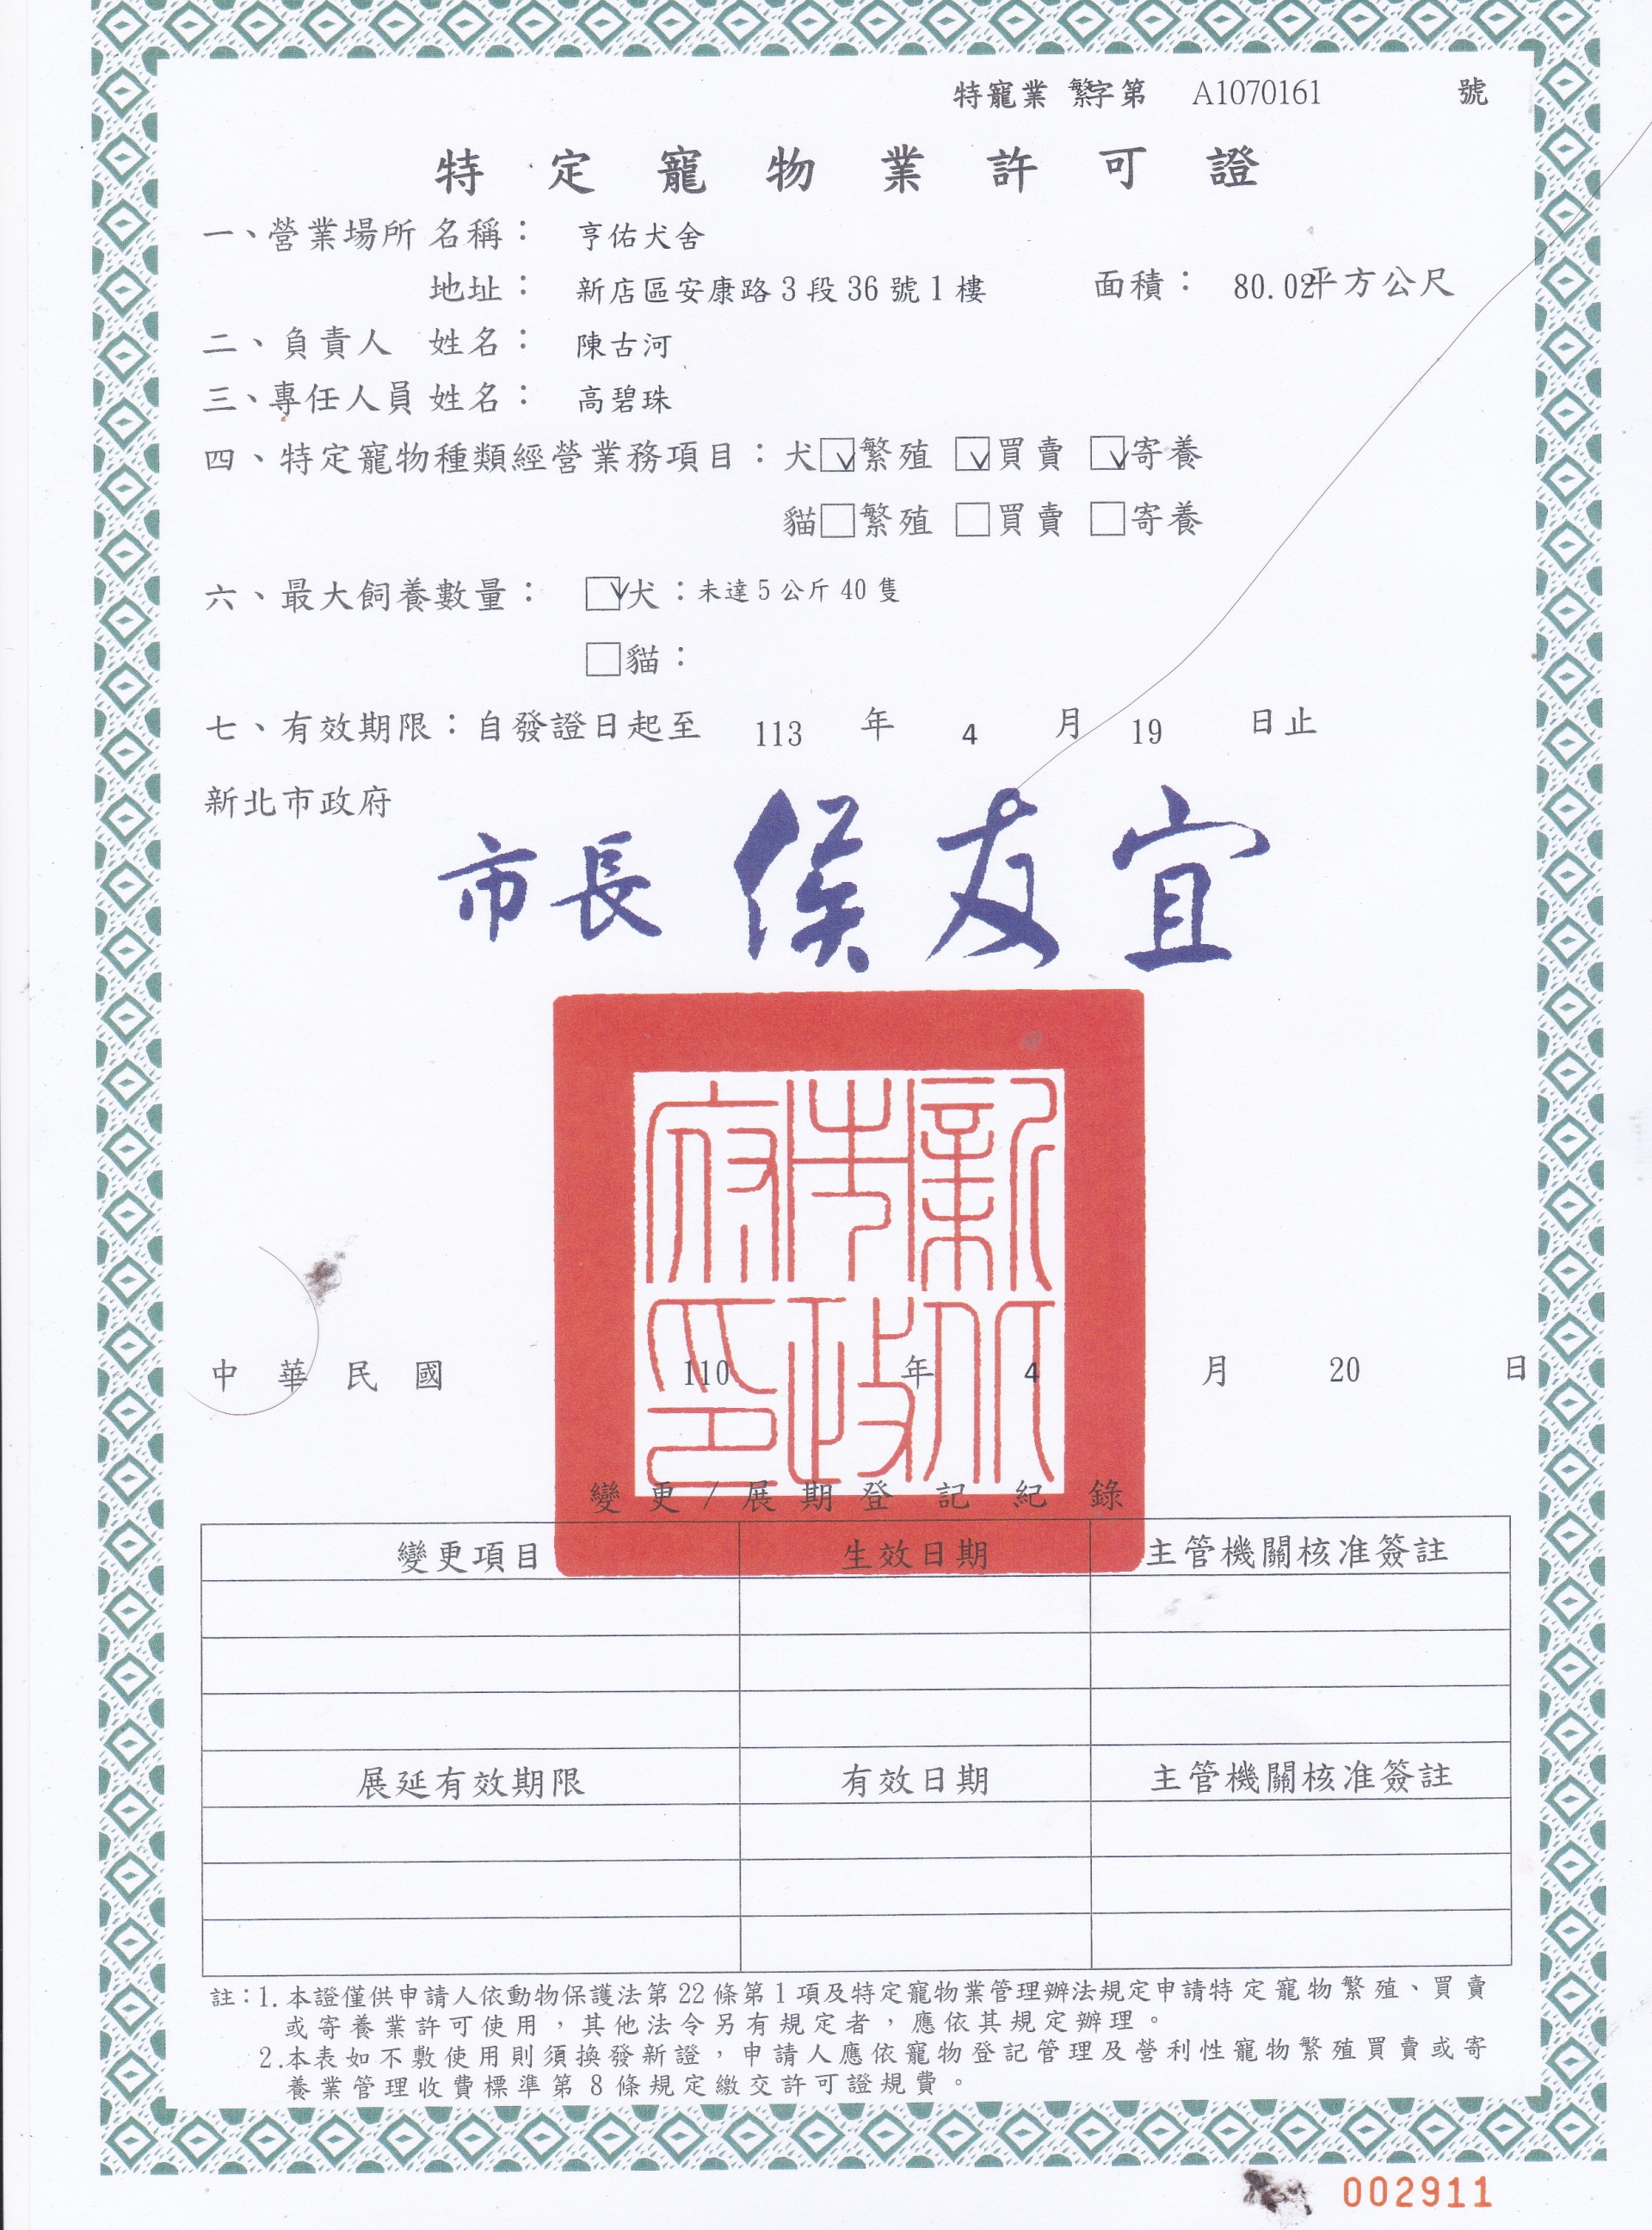 特寵業 繁字第 A1070161 號
特定寵物業許可證
一、營業場所 名稱： 亨佑犬舍
地址： 新店區安康路3段36號1樓 面積： 80.02平方公尺
二、負責人 姓名： 陳古河
三、專任人員 姓名： 高碧珠
四、特定寵物種類經營業務項目：犬☑繁殖 ☑買賣 ☑寄養
貓□繁殖 □買賣 □寄養
六、最大飼養數量： ☑犬：未達5公斤40隻
□貓：
七、有效期限：自發證日起至 113 年 4 月 19 日止
新北市政府
市長 侯友宜
新北市政府印
中華民國 110 年 4 月 20 日
變更/展期登記紀錄
變更項目 生效日期 主管機關核准簽註
展延有效期限 有效日期 主管機關核准簽註
註：1.本證僅供申請人依動物保護法第22條第1項及特定寵物業管理辦法規定申請特定寵物繁殖、買賣
或寄養業許可使用，其他法令另有規定者，應依其規定辦理。
2.本表如不敷使用則須換發新證，申請人應依寵物登記管理及營利性寵物繁殖買賣或寄
養業管理收費標準第8條規定繳交許可證規費。
002911